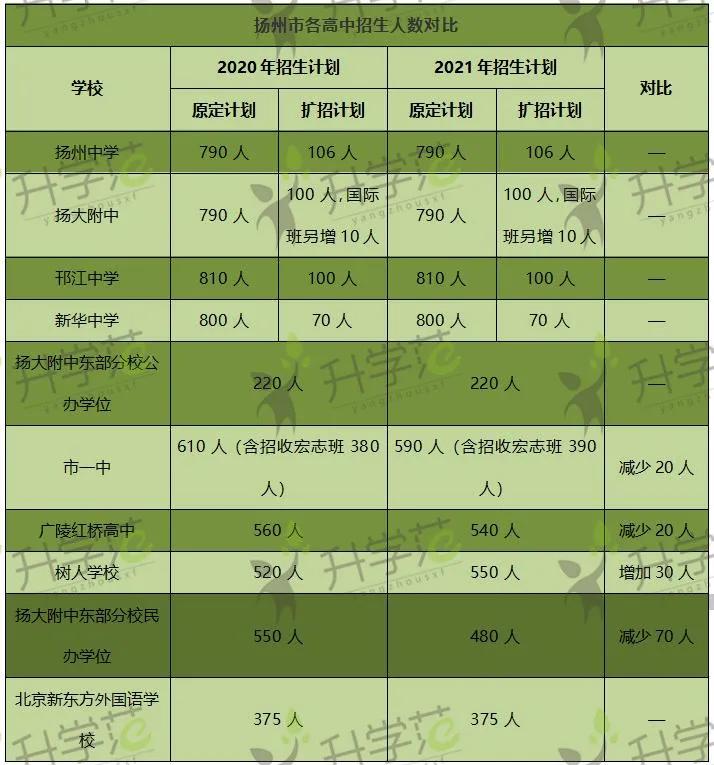 扬州市各高中招生人数对比
学校 2020年招生计划 2021年招生计划 对比
原定计划 扩招计划 原定计划 扩招计划
扬州中学 790人 106人 790人 106人 —
扬大附中 790人 100人,国际班另增10人 790人 100人,国际班另增10人 —
邗江中学 810人 100人 810人 100人 —
新华中学 800人 70人 800人 70人 —
扬大附中东部分校公办学位 220人 220人 —
市一中 610人（含招收宏志班380人） 590人（含招收宏志班390人） 减少20人
广陵红桥高中 560人 540人 减少20人
树人学校 520人 550人 增加30人
扬大附中东部分校民办学位 550人 480人 减少70人
北京新东方外国语学校 375人 375人 —
升学范
yangzhousxf